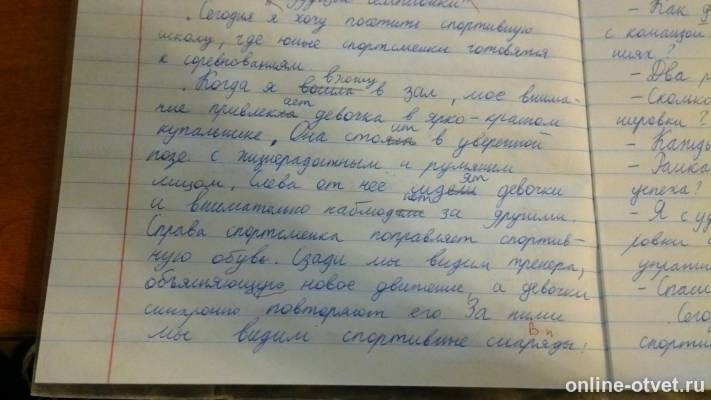 будущей чемпионки".
Сегодня я хочу посетить спортивную
школу, где юные спортсменки готовятся
к соревнованиям.
Когда я вошла вхожу в зал, мое внима-
ние привлекла ает девочка в ярко-красном
купальнике. Она стоял ит в уверенной
позе с жизнерадостным и румяным
лицом. Слева от неё сидели ят девочки
и внимательно наблюдают за другими.
Справа спортсменка поправляет спортив-
ную обувь. Сзади мы видим тренера,
объясняющую новое движение, а девочки
синхронно повторяют его. За ними
мы видим спортивные снаряды!
В.п.
- Как
с командой
ниях?
- Два
- Сколько
нировки?
- Кажды
успеха?
- Я с уд
ровки
упражн
- Спаси
Сего
спортив
online-otvet.ru